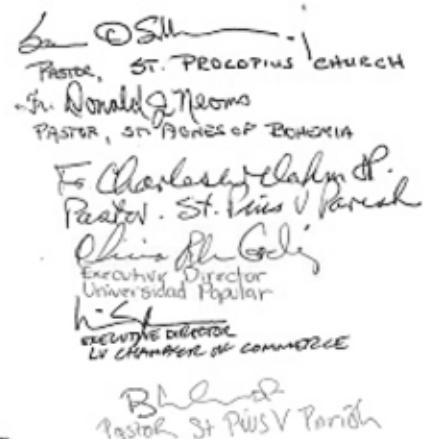 PASTOR, ST. PROCOPIUS CHURCH
Fr. Donald J Neomo
PASTOR, ST AGNES OF BOHEMIA
Fr Charles W Dahm OP.
Pastor. St. Pius V Parish
Executive Director
Universidad Popular
EXECUTIVE DIRECTOR
LV CHAMBER OF COMMERCE
Pastor St Pius V Parish